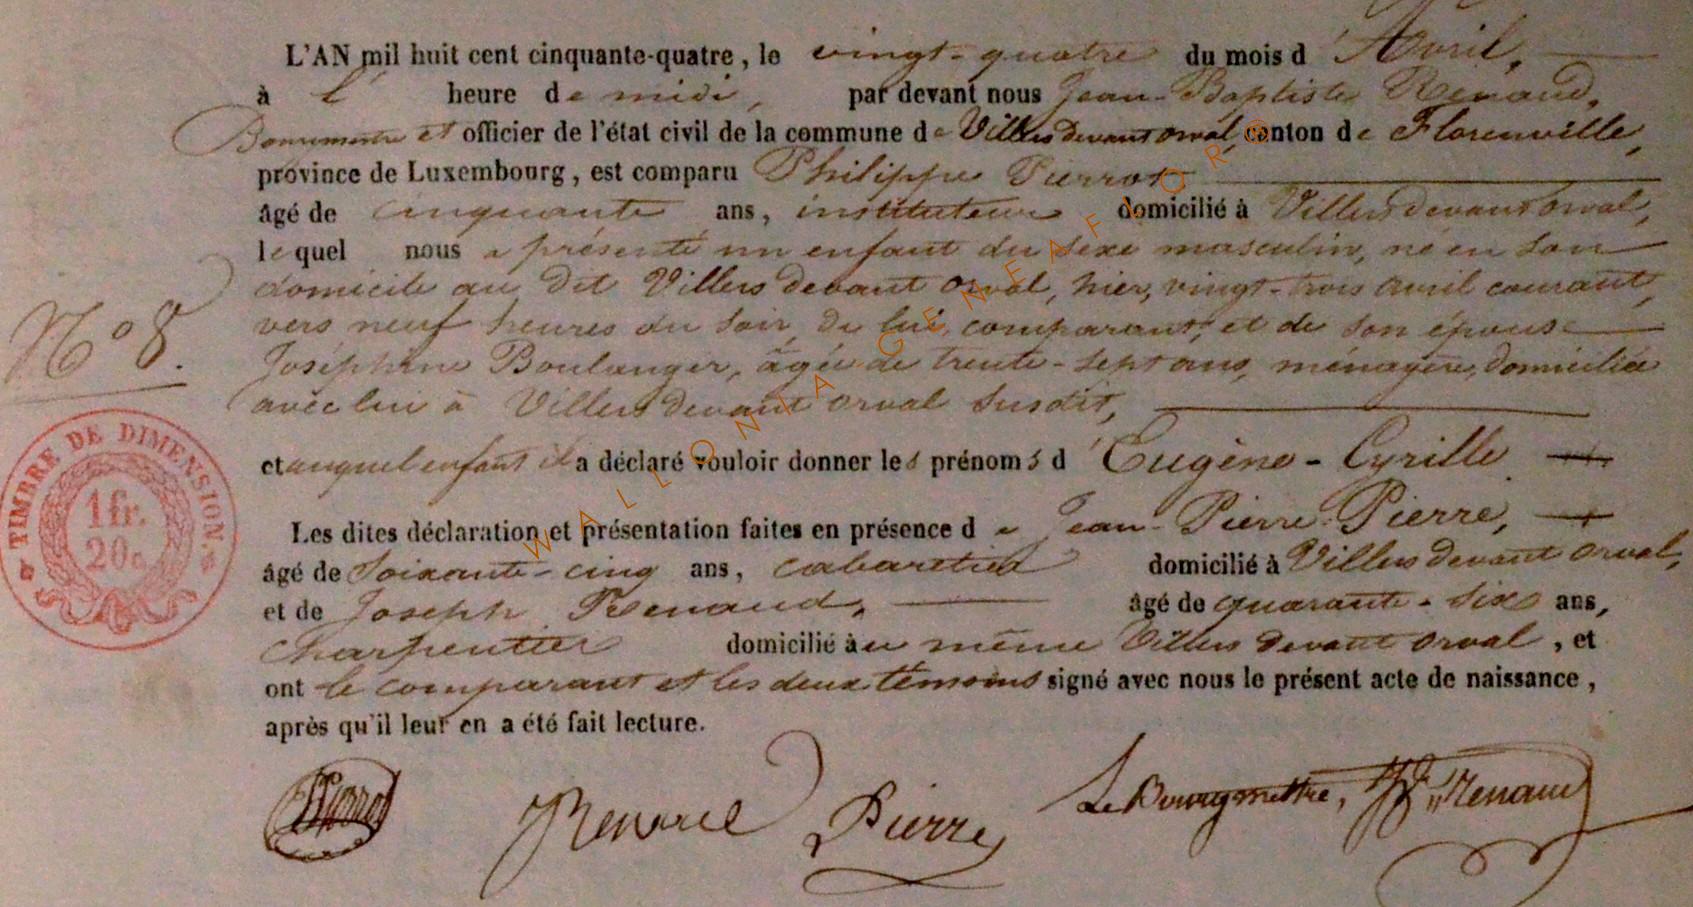 L'AN mil huit cent cinquante-quatre, le vingt-quatre du mois d'Avril,
à l' heure de midi, par devant nous Jean-Baptiste Renaud,
Bourgmestre et officier de l'état civil de la commune de Villers devant orval, canton de Florenville,
province de Luxembourg, est comparu Philippe Pierrot
âgé de cinquante ans, instituteur domicilié à Villers devant orval,
lequel nous a présenté un enfant du sexe masculin, né en son
domicile au dit Villers devant orval, hier, vingt-trois avril courant,
vers neuf heures du soir, de lui, comparant, et de son épouse
N° 8.
Joséphine Boulanger, âgée de trente-sept ans, ménagère, domiciliée
avec lui à Villers devant orval susdit,
et auquel enfant il a déclaré vouloir donner les prénoms d'Eugène-Cyrille
TIMBRE DE DIMENSION.
1fr.
20c
Les dites déclaration et présentation faites en présence de Jean-Pierre Pierre,
âgé de soixante-cinq ans, cabaretier domicilié à Villers devant orval,
et de Joseph Renaud, âgé de quarante-six ans,
charpentier domicilié au même Villers devant orval, et
ont le comparant et les deux témoins signé avec nous le présent acte de naissance,
après qu'il leur en a été fait lecture.
Pierrot Renaud Pierre Le Bourgmestre, JB Renaud
WALLONIA GENEAFLOR®